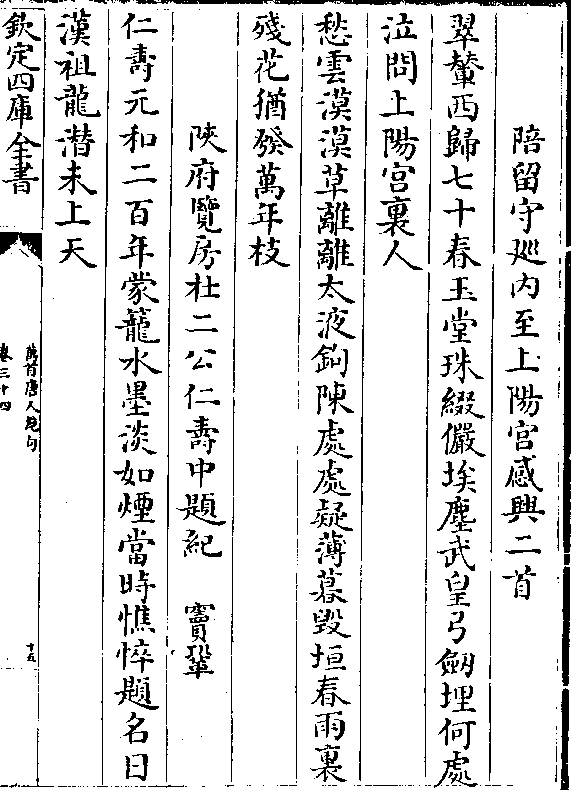 陪留守廵內至上陽宮感興二首
翠輦西歸七十春玉堂珠綴儼埃塵武皇弓劒埋何處
泣問上陽宮裏人
愁雲漠漠草離離太液鉤陳處處疑薄暮毀垣春雨裏
殘花猶發萬年枝
陜府覽房杜二公仁壽中題紀　竇鞏
仁壽元和二百年蒙籠水墨淡如煙當時憔悴題名日
漢祖龍潛未上天
欽定四庫全書
萬首唐人絶句
卷三十四
十五